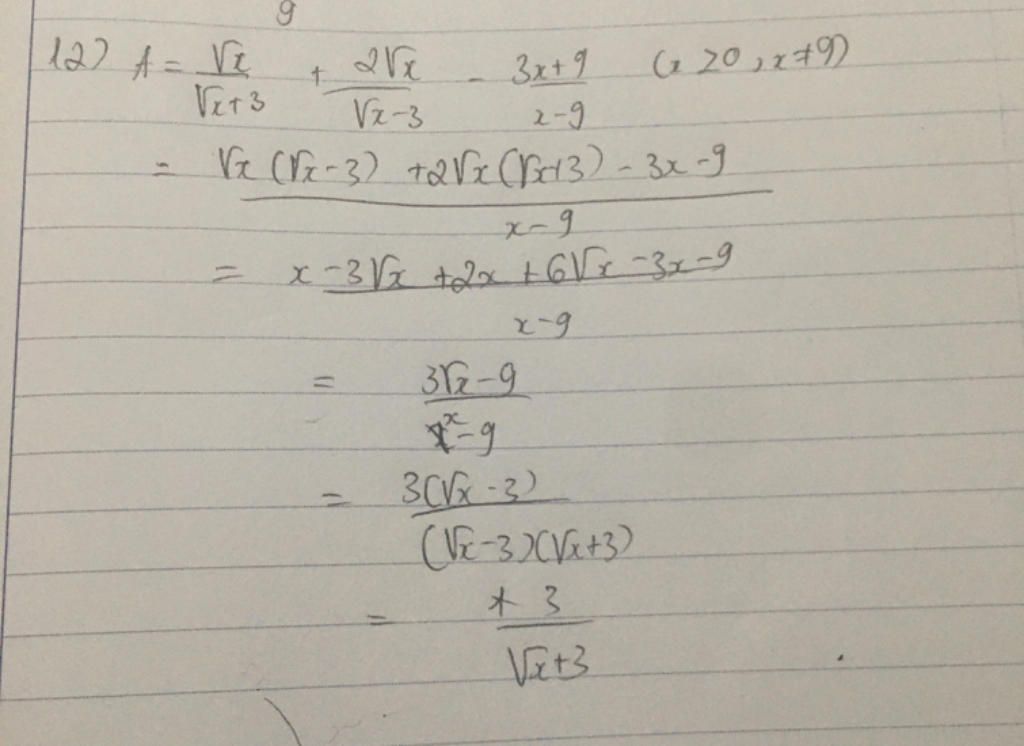 9
12) A = √x/(√x+3) + 2√x/(√x-3) - (3x+9)/(x-9) (x ≥0, x≠9)
= (√x(√x-3) +2√x(√x+3) -3x-9)/(x-9)
= (x-3√x+2x+6√x-3x-9)/(x-9)
= (3√x-9)/(x-9)
= 3(√x-3)/((√x-3)(√x+3))
= 3/(√x+3)